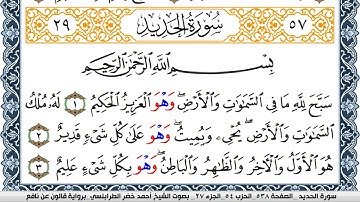 ٢٩ سورة الحديد ٥٧
بِسْمِ اللَّهِ الرَّحْمَٰنِ الرَّحِيمِ
سَبَّحَ لِلَّهِ مَا فِي السَّمَٰوَٰتِ وَالْأَرْضِ وَهْوَ الْعَزِيزُ الْحَكِيمُ ١ لَهُ مُلْكُ
السَّمَٰوَٰتِ وَالْأَرْضِ يُحْيِۦ وَيُمِيتُ وَهْوَ عَلَىٰ كُلِّ شَيْءٍ قَدِيرٌ ٢
هُوَ الْأَوَّلُ وَالْآخِرُ وَالظَّٰهِرُ وَالْبَاطِنُ وَهْوَ بِكُلِّ شَيْءٍ عَلِيمٌ ٣
سورة الحديد _ الصفحة ٥٣٨_ الحزب ٥٤_ الجزء ٢٧_ بصوت الشيخ أحمد خضر الطرابلسي _ برواية قالون عن نافع